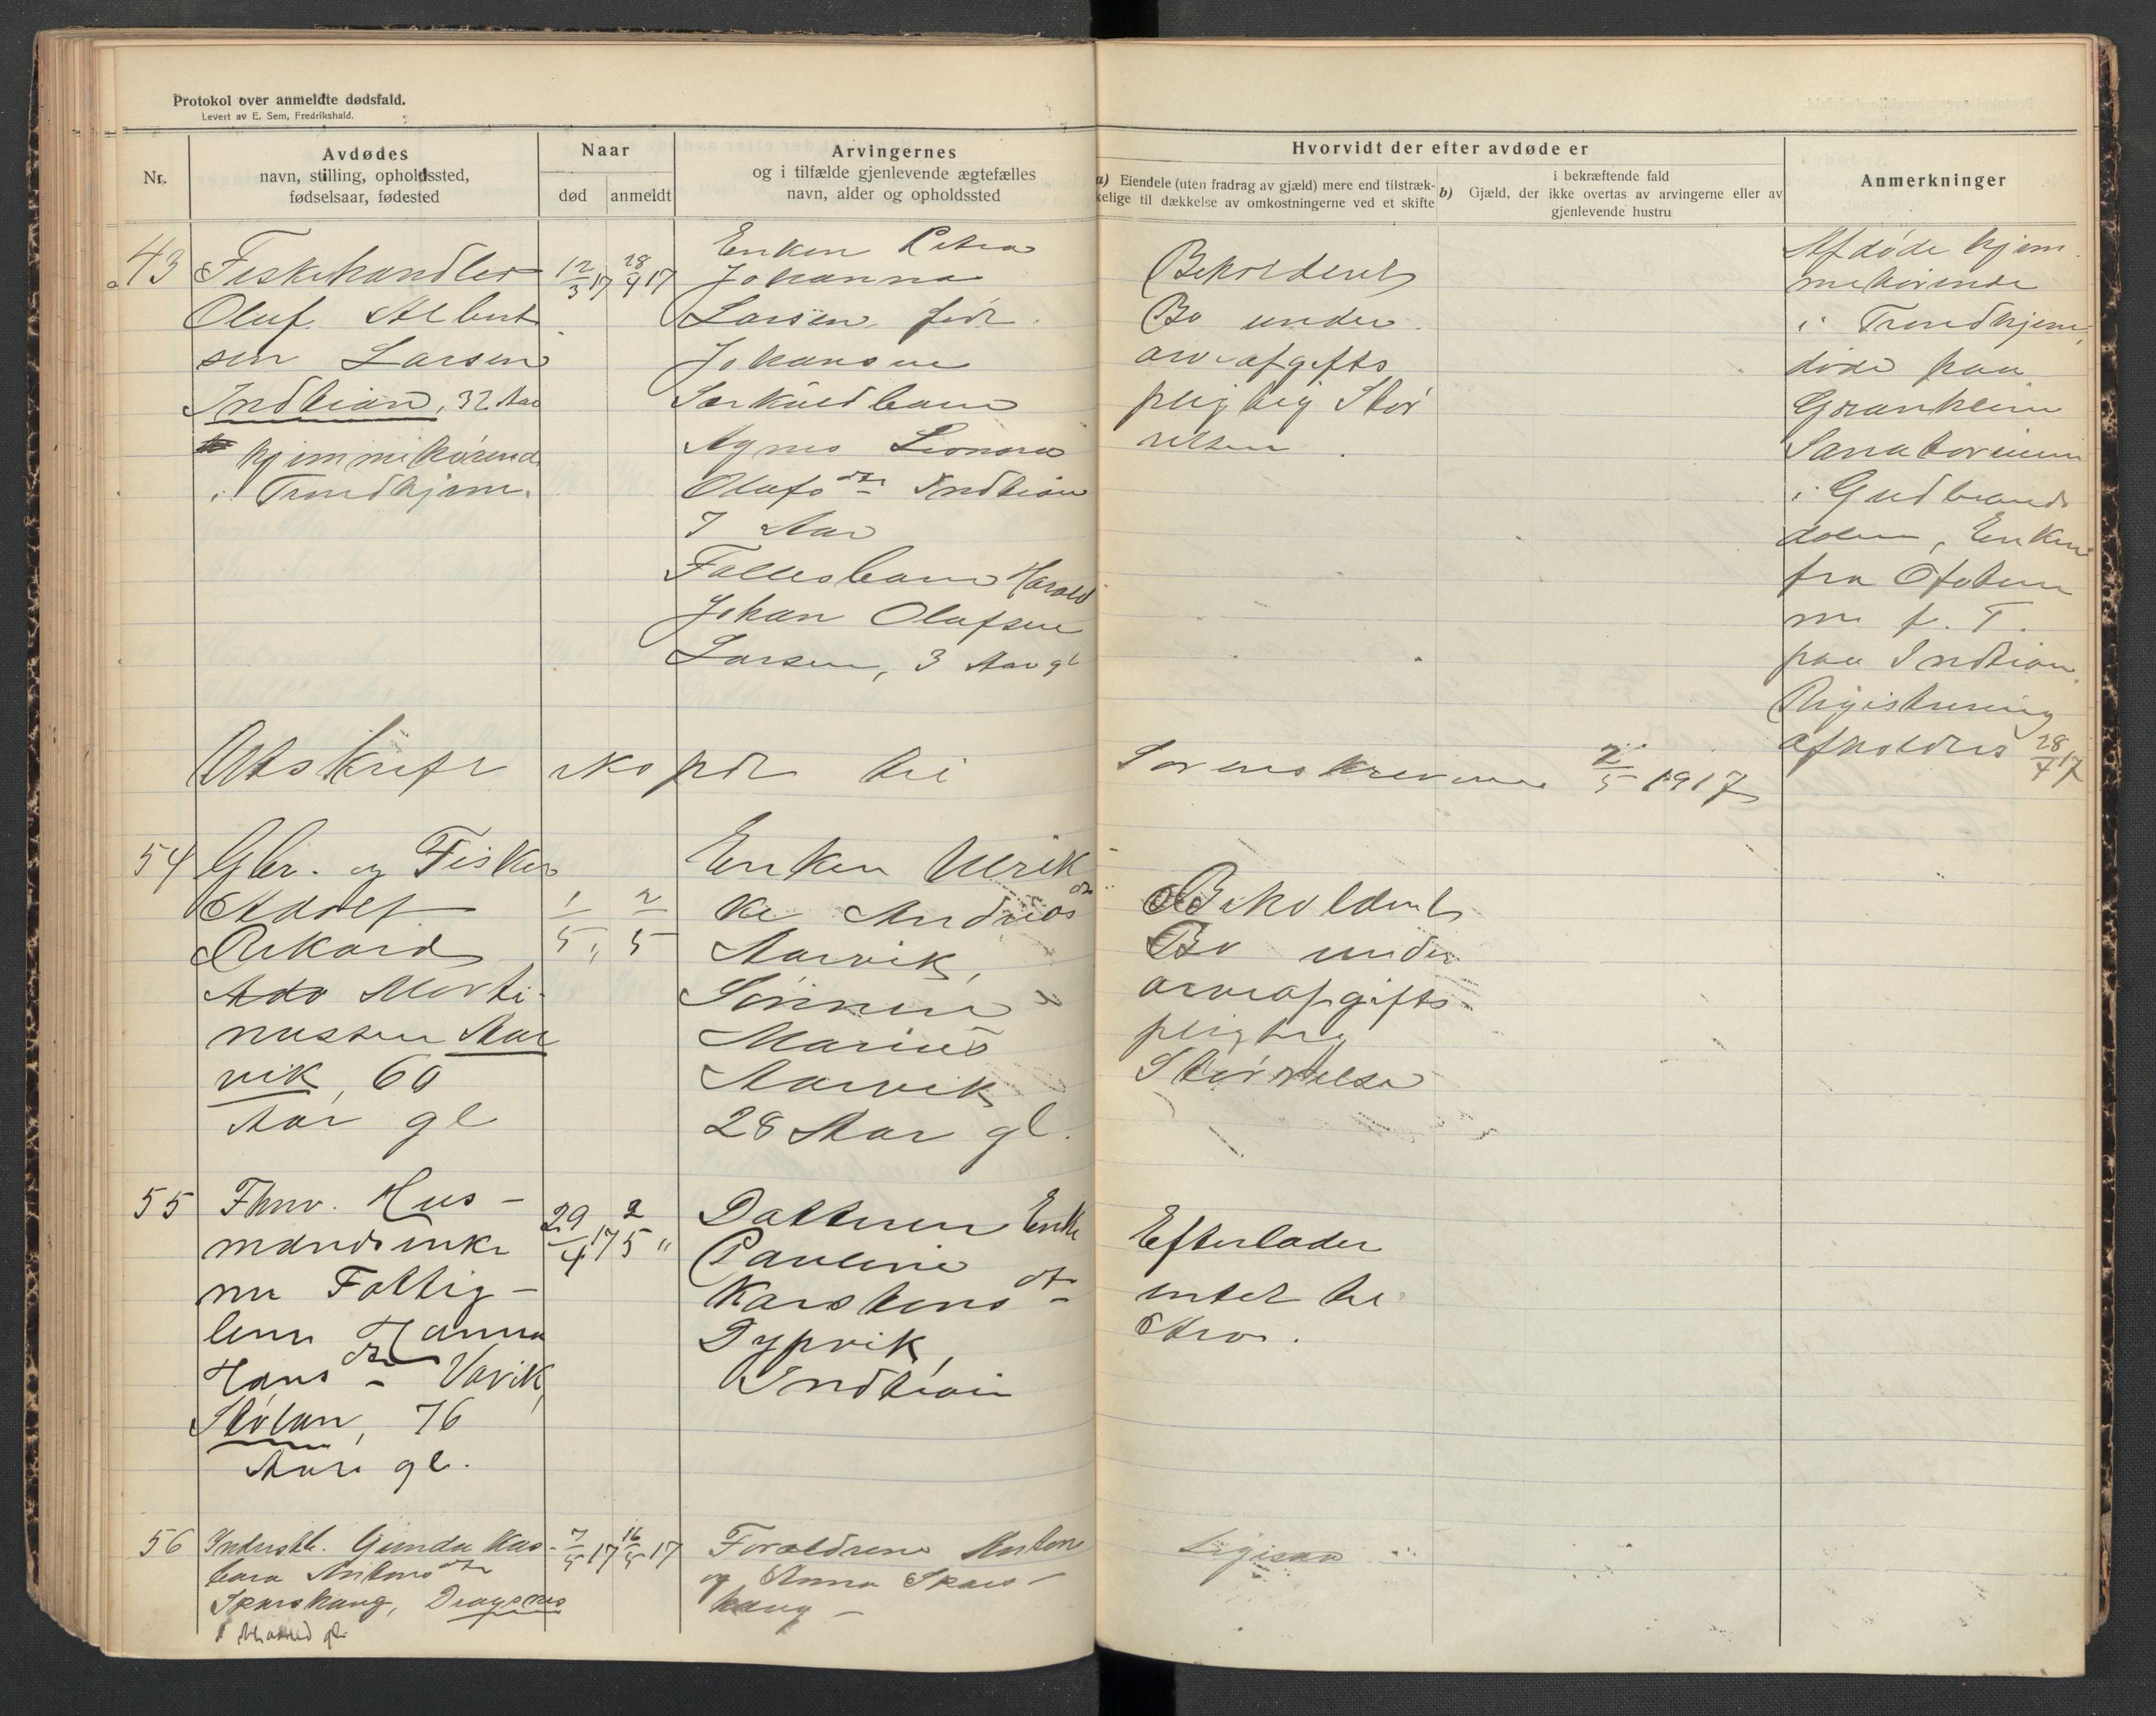 Protokol over anmeldte dødsfald.
Levert av E. Sem, Fredrikshald.
Nr.
Avdødes
navn, stilling, opholdssted,
fødselsaar, fødested
Naar
død
anmeldt
Arvingernes
og i tilfælde gjenlevende ægtefælles
navn, alder og opholdssted
Hvorvidt der efter avdøde er
a) Eiendele (uten fradrag av gjæld) mere end tilstræk-
kelige til dækkelse av omkostningerne ved et skifte
i bekræftende fald
b) Gjæld, der ikke overtas av arvingerne eller av
gjenlevende hustru
Anmerkninger
43
Fiskehandler
Oluf Albert
sen Larsen
Indtian, 32 Aar
hjemmehørend
i Trondhjem.
12/3 17
28/4 17
Enken Petra
Johanna
Larsen, født
Johansen
Særkuldbarn
Agnes Leonora
Olufsdtr Indtian
7 Aar
Fællesbarn Harald
Johan Olufsen
Larsen, 3 Aar gl
Beholdent
Bo under
arveafgifts
pligtig Stør
relsen.
Afdøde hjem
mehørende
i Trondhjem,
døde paa
Granheim
Sanatorium
i Gudbrands
dalen, Enken
fra Ofoten
nu p. T.
paa Indtian.
Registrering
afholdes 28/4 17
Utskrift ekspdt til Sorenskriveren 2/5 1917
54
Gbr. og Fisker
Adolf
Rikard
Morti-
nussen Aar
vik, 60
Aar gl
1/5,
2/5
Enken Ulrik
ke Andreasdtr
Aarvik,
Sønnen
Marius
Aarvik
28 Aar gl.
Beholdent
Bo under
arveafgifts
pligtig
Størrelse
55
Fhnv. Hus-
mandsenke
nu Fattig-
lem Hanna
Hansdtr Vavik,
Stølan, 76
Aar gl.
29/4 17
2/5 "
Datteren Enke
Pauline
Karstensdtr
Dypvik,
Indtian
Efterlader
intet til
Arv.
56
Inderstb. Gunda Kas-
bara Antonsdtr
Skarshaug, Dragsnes
1 Maaned gl.
7/5 17
16/5 17
Forældrene Anton
og Anna Skars-
haug -
Ligesaa